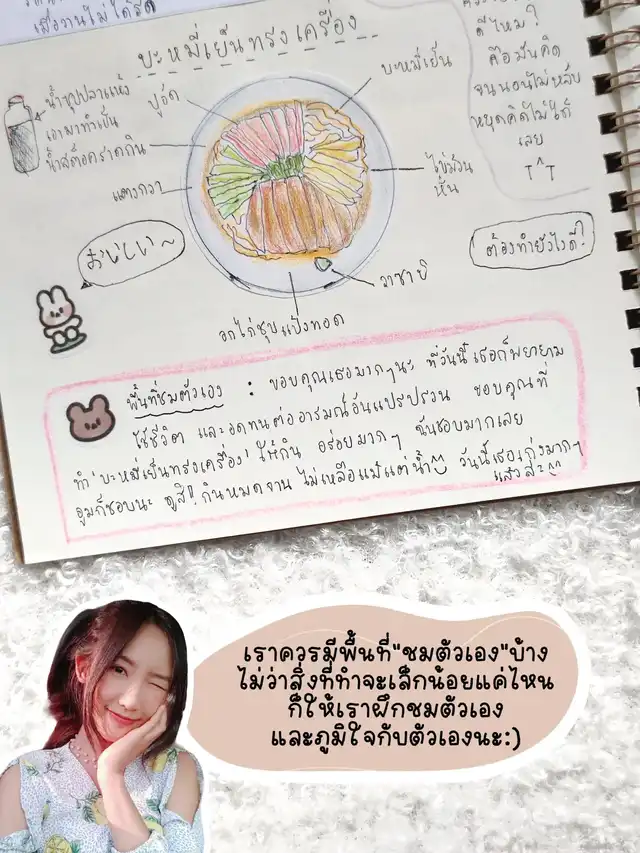 เมื่อวานไม่ได้รีด
บะหมี่เย็นทรงเครื่อง
ดีไหม?
คือมันคิด
จนนอนไม่หลับ
หยุดคิดไม่ได้
เลย
T^T
ต้องทำยังไงดี?
น้ำซุปปลาแห้ง
เอามาทำเป็น
น้ำสต๊อคราดกิน
ปูอัด
บะหมี่เย็น
แตงกวา
ไข่ม้วน
หั่น
おいしい~
วาซาบิ
อกไก่ชุบแป้งทอด
พื้นที่ชมตัวเอง : ขอบคุณเธอมากๆนะ ที่วันนี้เธอก็พยายาม
ใช้ชีวิต และอดทนต่ออารมณ์อันแปรปรวน ขอบคุณที่
ทำ 'บะหมี่เย็นทรงเครื่อง' ให้กิน อร่อยมากๆ ฉันชอบมากเลย
อูมก็ชอบนะ ดูสิ!! กินหมดจาน ไม่เหลือแม้แต่น้ำ วันนี้เธอเก่งมากๆ
แล้วล่ะ^^
เราควรมีพื้นที่"ชมตัวเอง"บ้าง
ไม่ว่าสิ่งที่ทำจะเล็กน้อยแค่ไหน
ก็ให้เราฝึกชมตัวเอง
และภูมิใจกับตัวเองนะ:)